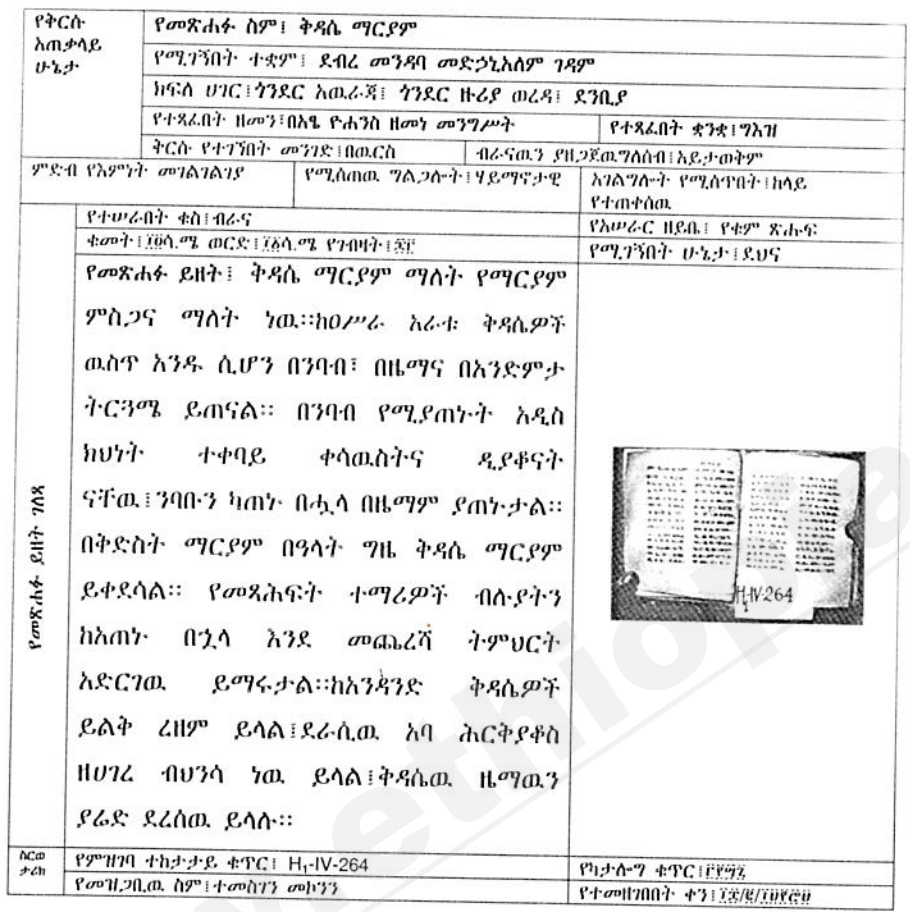 የቅርሱ
አጠቃላይ
ሁኔታ
የመጽሐፉ ስም፤ ቅዳሴ ማርያም
የሚገኝበት ተቋም፤ ደብረ መንዳባ መድኃኒአለም ገዳም
ክፍለ ሀገር፤ጎንደር አዉራጃ፤ ጎንደር ዙሪያ ወረዳ፤ ደንቢያ
የተጻፈበት ዘመን፤በአፄ ዮሐንስ ዘመነ መንግሥት
የተጻፈበት ቋንቋ፤ግእዝ
ቅርሱ የተገኘበት መንገድ፤በዉርስ
ብራናዉን ያዘጋጀዉግለሰብ፤አይታወቅም
ምድብ የእምነት መገልገልገያ
የሚሰጠዉ ግልጋሎት፤ሃይማኖታዊ
አገልግሎት የሚሰጥበት፤ከላይ
የተጠቀሰዉ
የተሠራበት ቁስ፤ብራና
የአሠራር ዘይቤ፤ የቁም ጽሑፍ
ቁመት፤ ሳ.ሜ ወርድ፤ ሳ.ሜ የገብዛት፤
የሚገኝበት ሁኔታ፤ደህና
የመጽሐፉ ይዘት ገለጻ
የመጽሐፉ ይዘት፤ ቅዳሴ ማርያም ማለት የማርያም
ምስጋና ማለት ነዉ።ከዐሥራ አራቱ ቅዳሴዎች
ዉስጥ አንዱ ሲሆን በንባብ፣ በዜማና በአንድምታ
ትርጓሜ ይጠናል። በንባብ የሚያጠኑት አዲስ
ክህነት ተቀባይ ቀሳዉስትና ዲያቆናት
ናቸዉ፤ንባቡን ካጠኑ በሗላ በዜማም ያጠኑታል።
በቅድስት ማርያም በዓላት ግዜ ቅዳሴ ማርያም
ይቀደሳል። የመጻሕፍት ተማሪዎች ብሉያትን
ከአጠኑ በኋላ እንደ መጨረሻ ትምህርት
አድርገዉ ይማሩታል።ከአንዳንድ ቅዳሴዎች
ይልቅ ረዘም ይላል፤ደራሲዉ አባ ሕርቅያቆስ
ዘሀገረ ብህንሳ ነዉ ይላል፤ቅዳሴዉ ዜማዉን
ያሬድ ደረሰዉ ይላሉ።
H-IV-264
ስርወ
ታሪክ
የምዝገባ ተከታታይ ቁጥር፤ H₁-IV-264
የካታሎግ ቁጥር፤
የመዝጋቢዉ ስም፤ተመስገን መኮንን
የተመዘገበበት ቀን፤